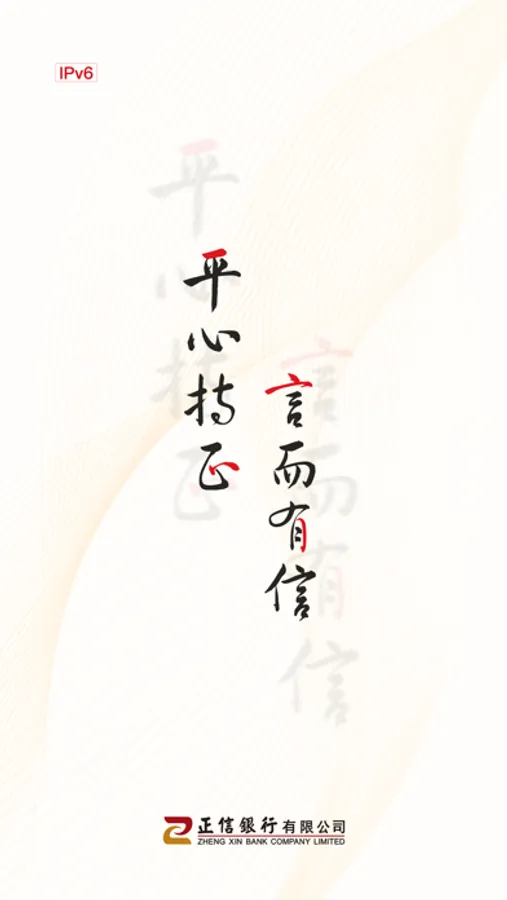 IPv6
平心持正
言而有信
正信銀行有限公司
ZHENG XIN BANK COMPANY LIMITED